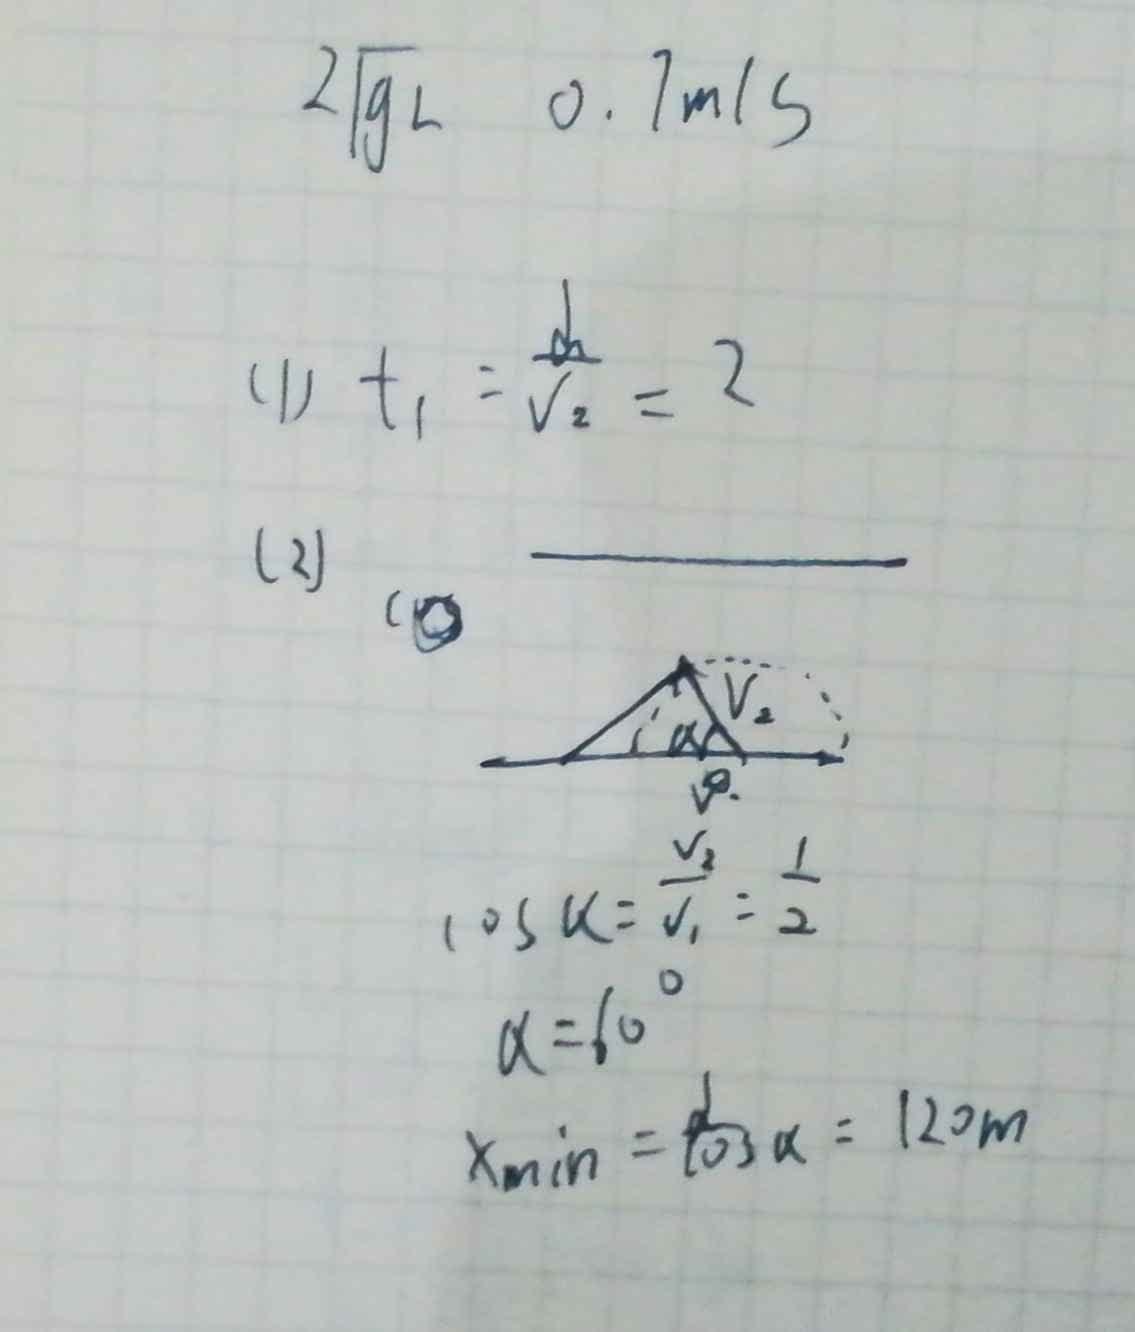 2√gL 0.7m/s
(1) t₁ = d/v₂ = 2
(2)
α V₂
cos α = v₂/v₁ = 1/2
α = 60°
xmin = d/cos α = 120m